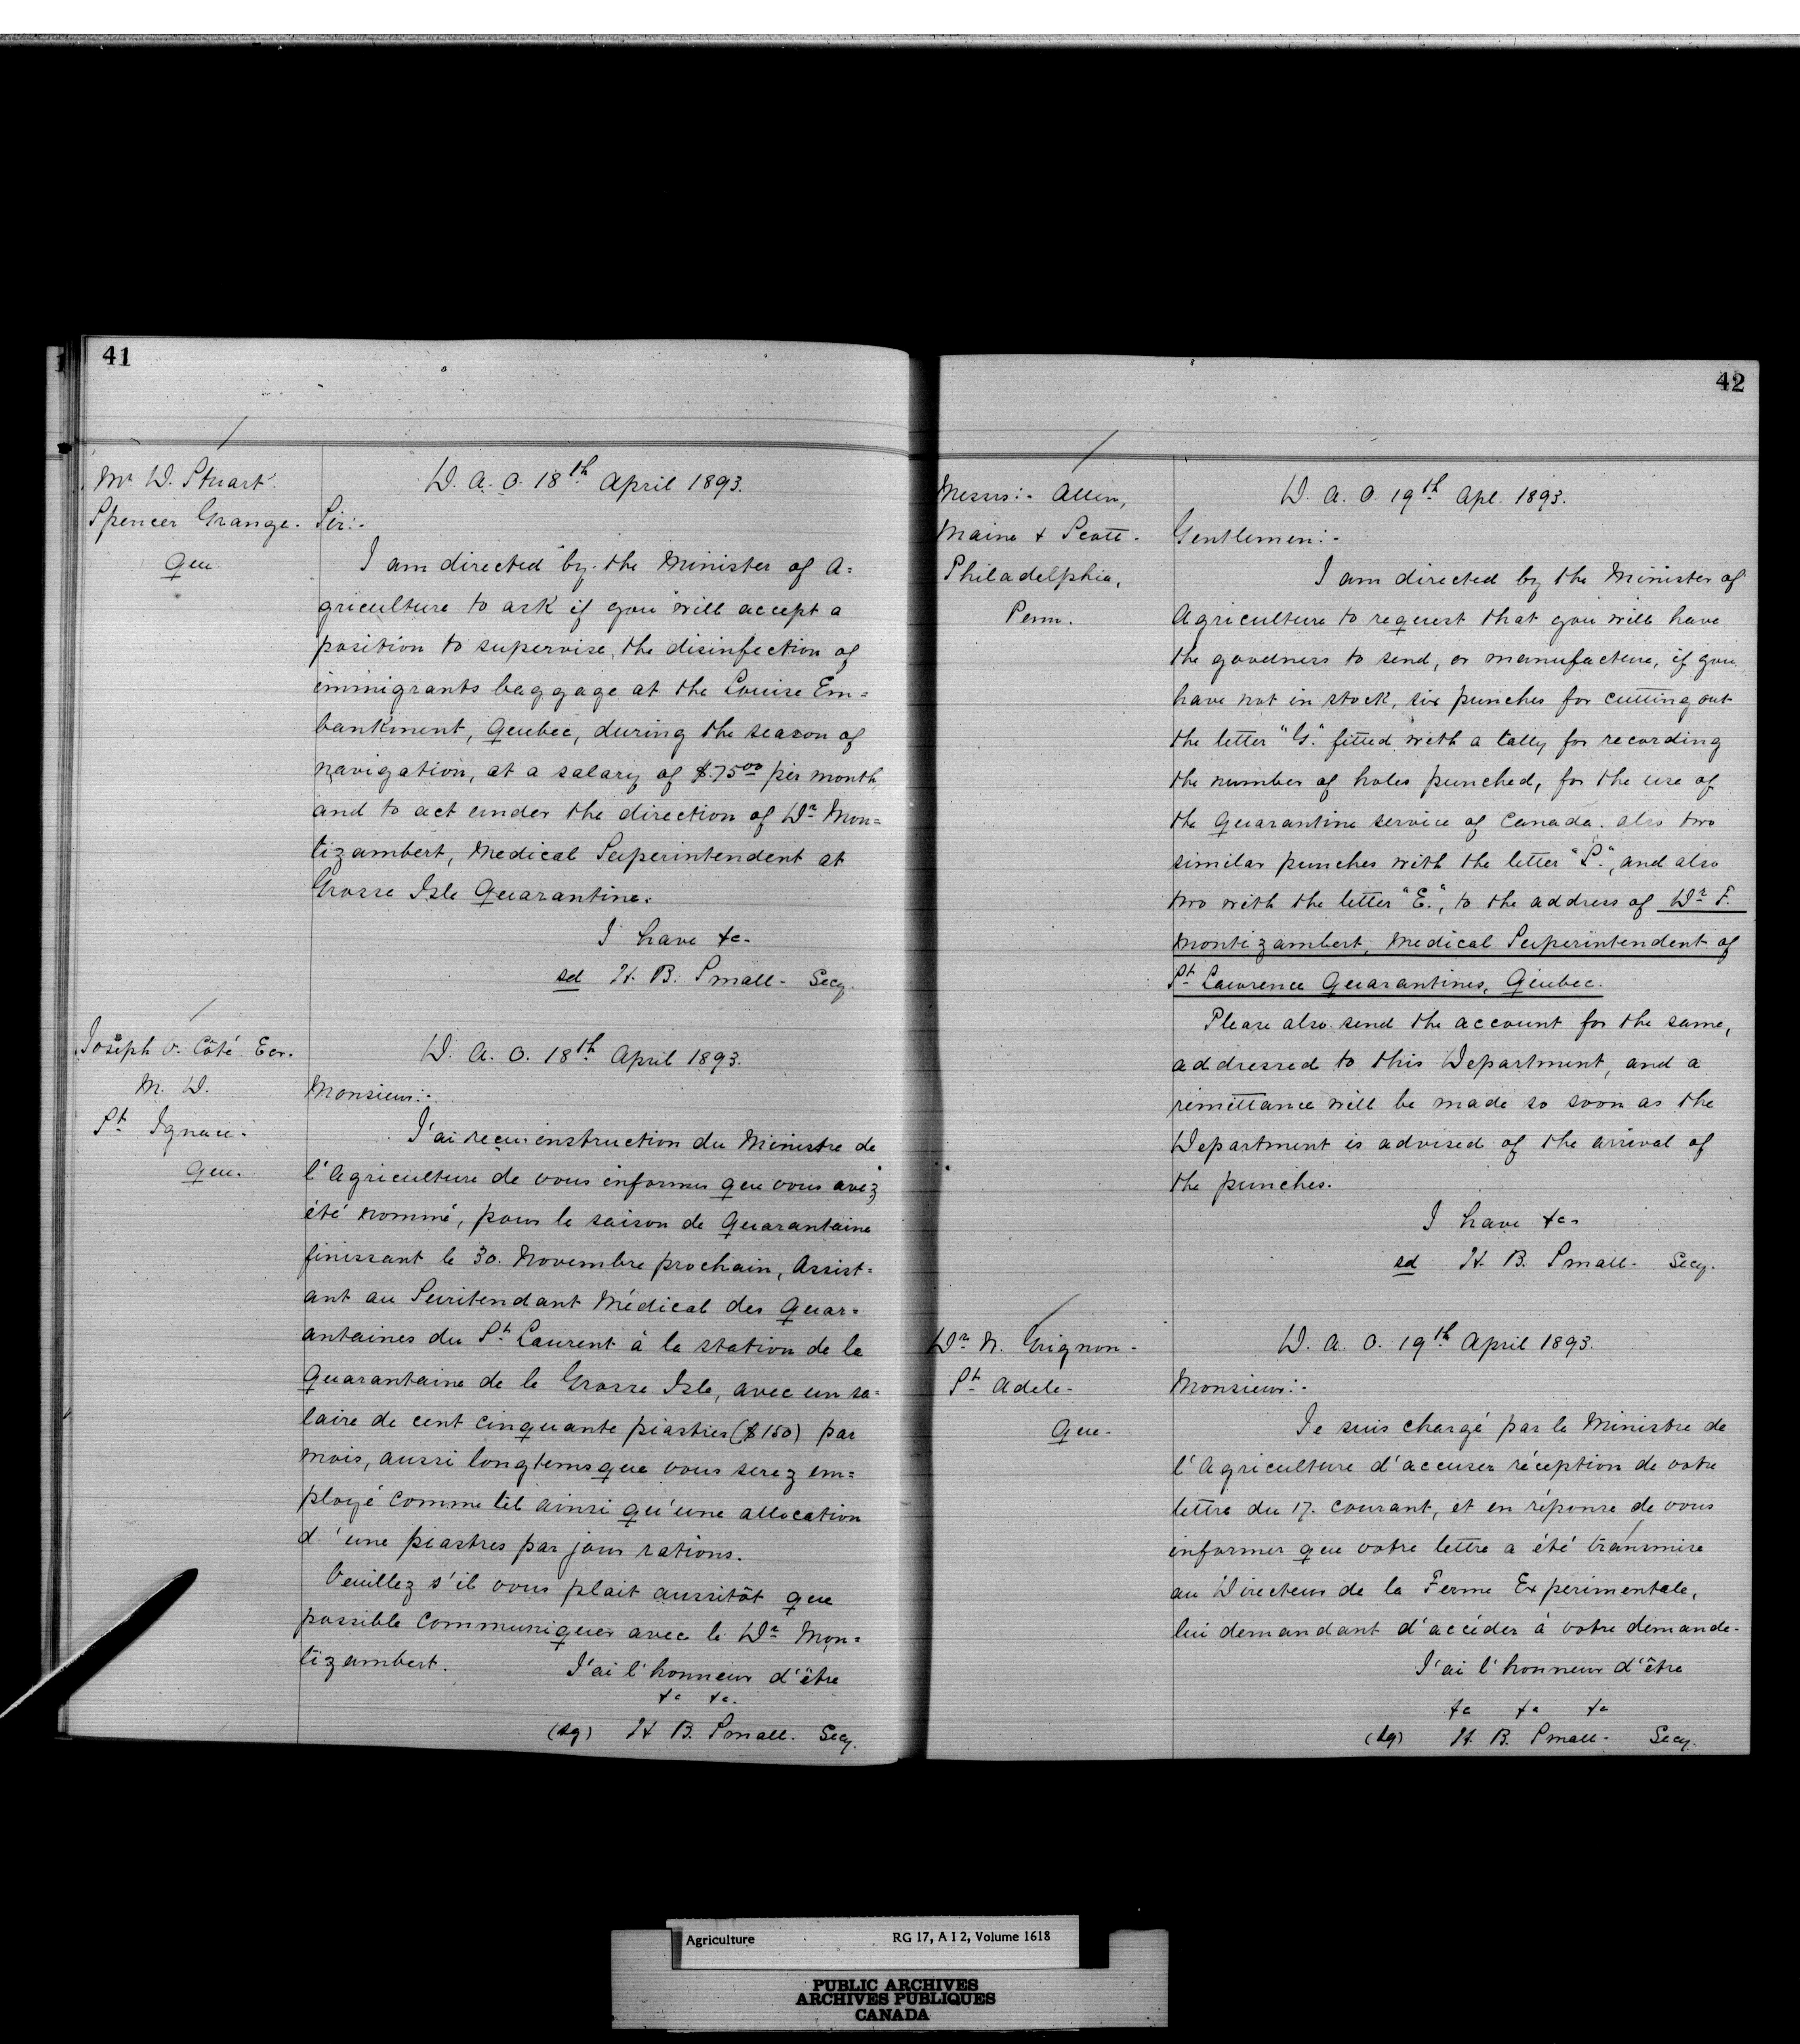 41
Mr. D. Stuart.
Spencer Grange.
Que.
D. A. O. 18th April 1893.
Sir:-
I am directed by the Minister of A=
griculture to ask if you will accept a
position to supervise the disinfection of
immigrants baggage at the Louise Em=
bankment, Quebec, during the season of
navigation, at a salary of $75.00 per month,
and to act under the direction of Dr. Mon=
tizambert, Medical Superintendent at
Grosse Isle Quarantine.
I have &c.
sd H. B. Small. Secy.
Joseph O. Côté Ecr.
M. D.
St Ignace.
Que.
D. A. O. 18th April 1893.
Monsieur:-
J'ai reçu instruction du Ministre de
l'Agriculture de vous informer que vous avez
été nommé, pour la saison de Quarantaine
finissant le 30. Novembre prochain, Assist=
ant au Suritendant Médical des Quar=
antaines du St. Laurent à la station de la
Quarantaine de la Grosse Isle, avec un sa=
laire de cent cinquante piastres ($150) par
mois, aussi longtems que vous serez em=
ployé comme tel ainsi qu'une allocation
d'une piastres par jour rations.
Veuillez s'il vous plait aussitôt que
possible communiquer avec le Dr. Mon=
tizambert.
J'ai l'honneur d'être
&c &c.
(sg) H B. Small. Secy.
42
Messrs:- Allen,
Maine & Scott.
Philadelphia,
Penn.
D. A. O. 19th Apl. 1893.
Gentlemen:-
I am directed by the Minister of
Agriculture to request that you will have
the goodness to send, or manufacture, if you
have not in stock, six punches for cutting out
the letter "G." fitted with a tally for recording
the number of holes punched, for the use of
the Quarantine service of Canada. also two
similar punches with the letter "S.", and also
two with the letter "E.", to the address of Dr. F.
Montizambert, Medical Superintendent of
St. Lawrence Quarantines, Quebec.
Please also send the account for the same,
addressed to this Department, and a
remittance will be made so soon as the
Department is advised of the arrival of
the punches.
I have &c.
sd H. B. Small. Secy.
Dr. N. Grignon.
St. Adele.
Que.
D. A. O. 19th April 1893.
Monsieur:-
Je suis chargé par le Ministre de
l'Agriculture d'accuser réception de votre
lettre du 17. courant, et en réponse de vous
informer que votre lettre a été transmise
au Directeur de la Ferme Experimentale,
lui demandant d'accéder à votre demande.
J'ai l'honneur d'être
&c &c &c
(sg) H. B. Small. Secy.
Agriculture RG 17, A I 2, Volume 1618
PUBLIC ARCHIVES
ARCHIVES PUBLIQUES
CANADA